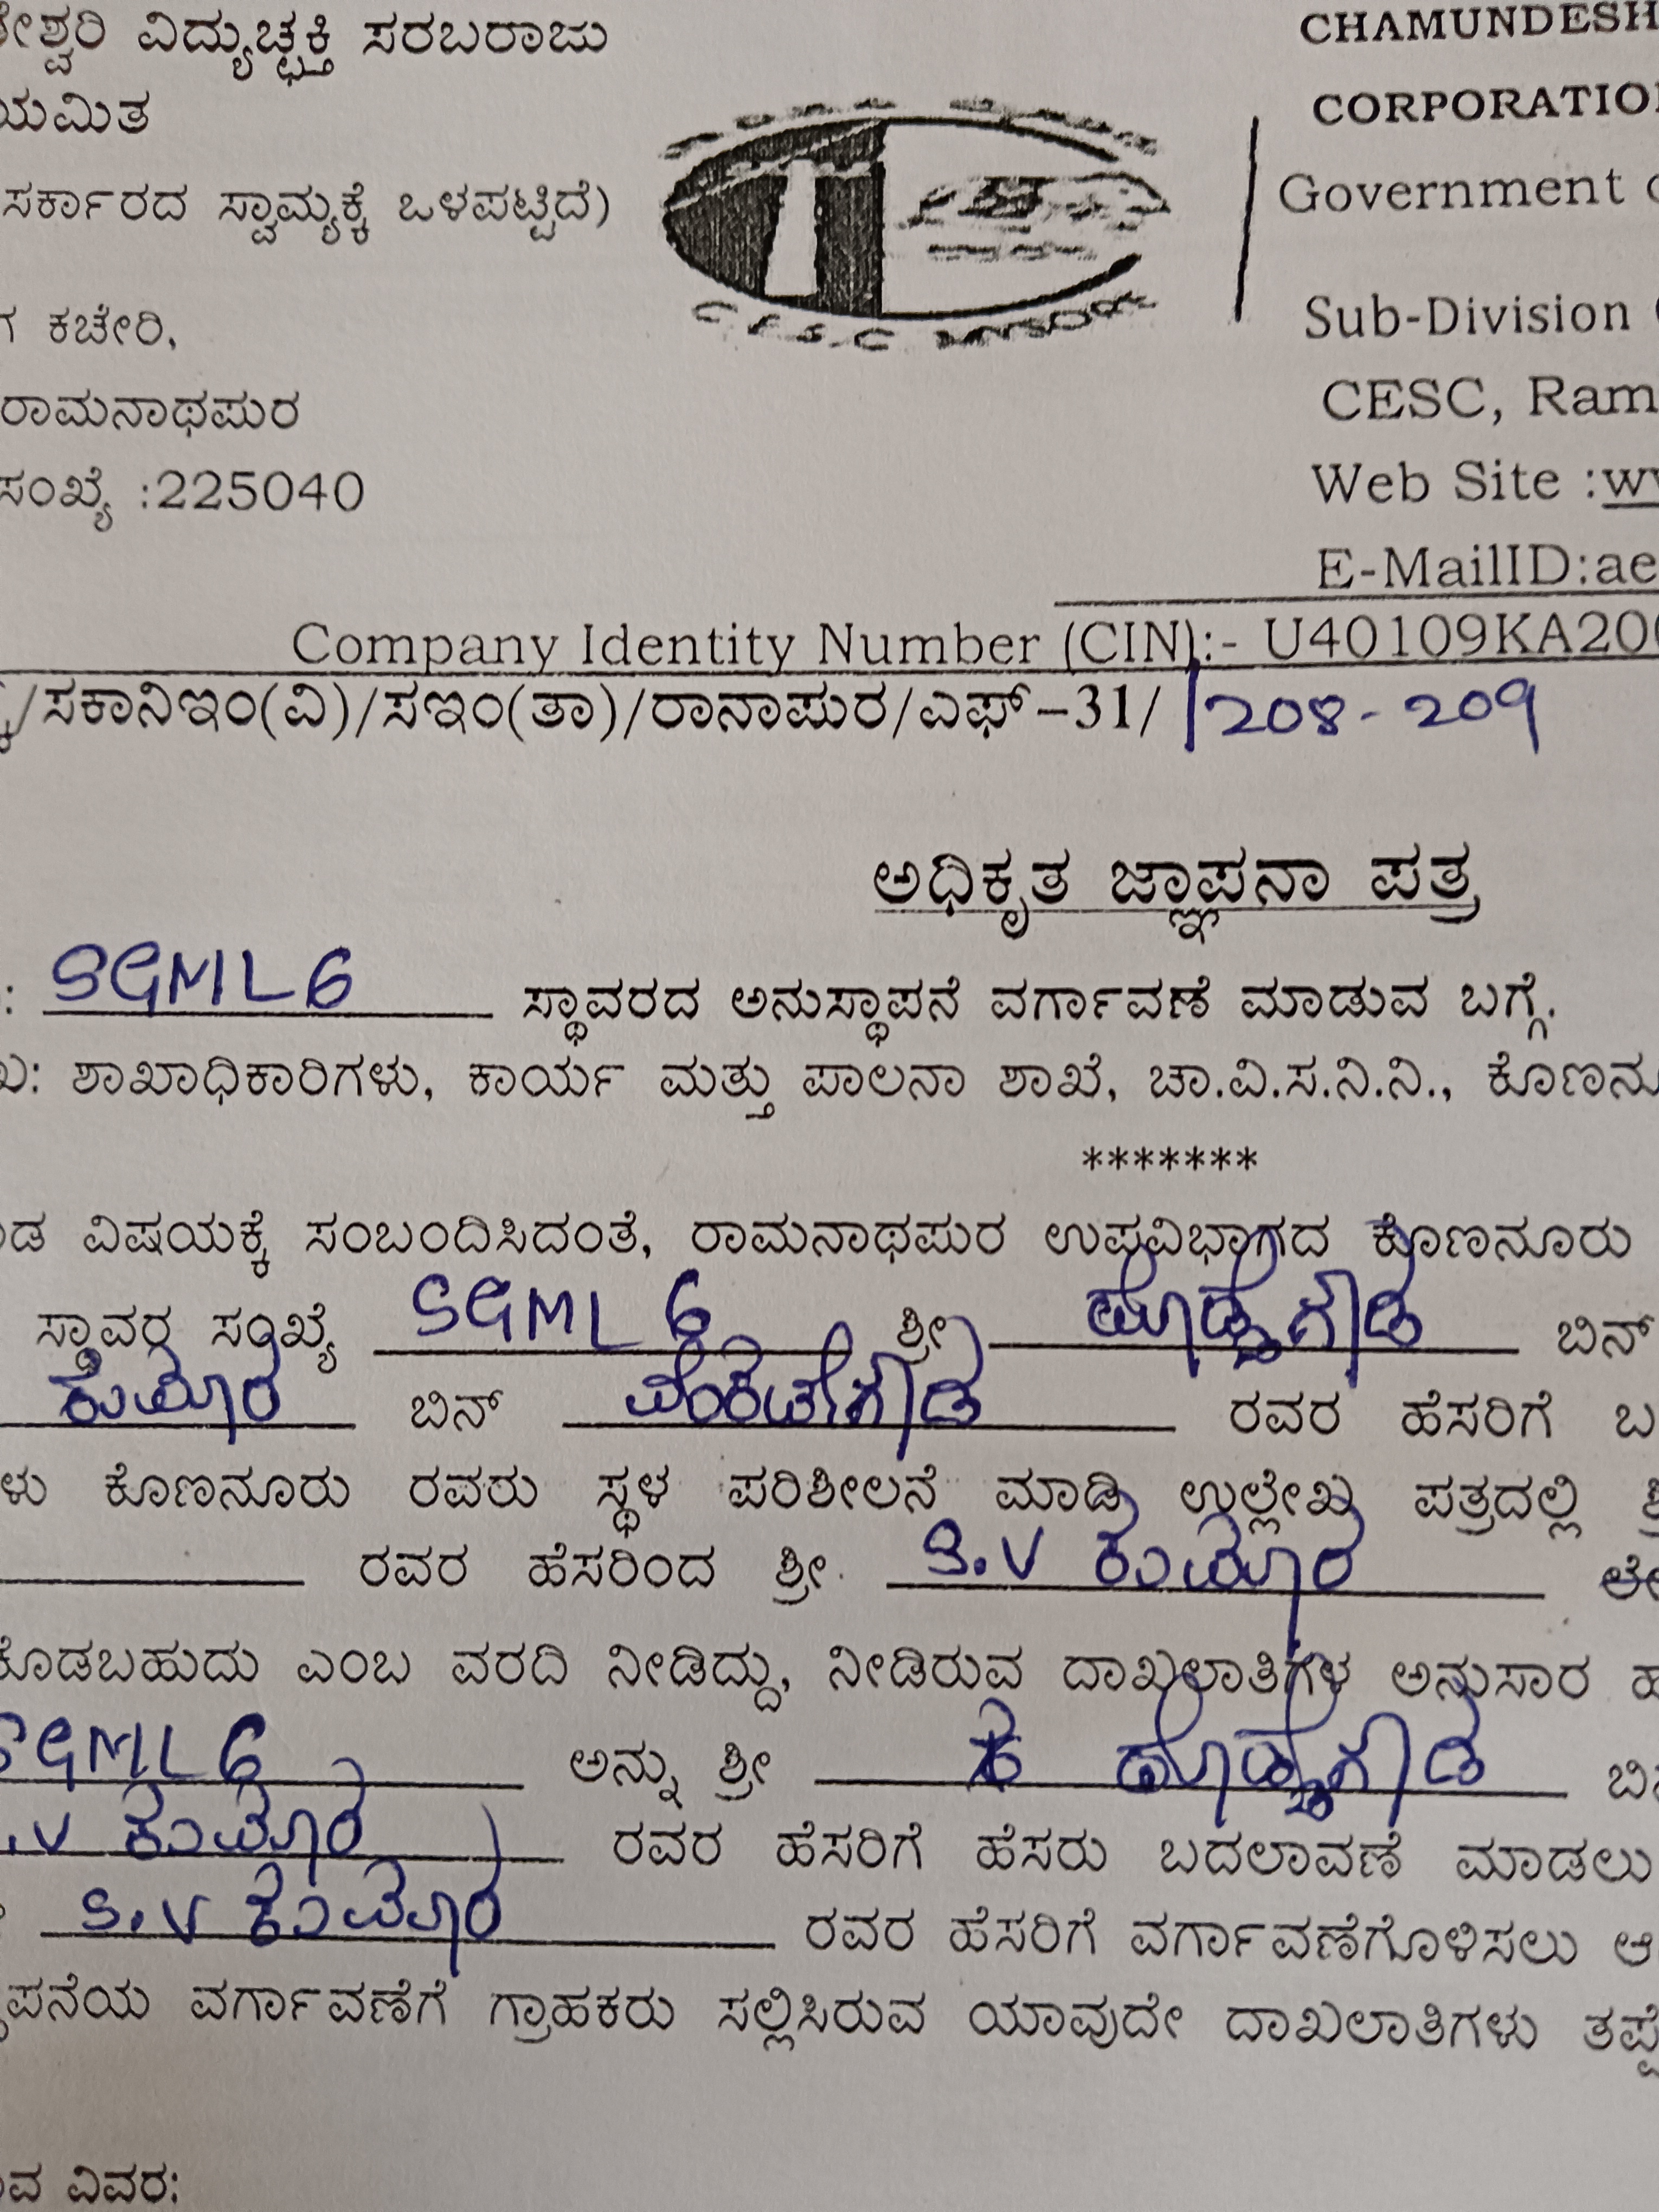 ಶ್ವರಿ ವಿದ್ಯುಚ್ಛಕ್ತಿ ಸರಬರಾಜು
ಯಮಿತ
ಸರ್ಕಾರದ ಸ್ವಾಮ್ಯಕ್ಕೆ ಒಳಪಟ್ಟಿದೆ)
ಗ ಕಚೇರಿ,
ರಾಮನಾಥಪುರ
ಸಂಖ್ಯೆ :225040
CHAMUNDESH
CORPORATIO
Government
Sub-Division
CESC, Ram
Web Site :w
E-MailID:ae
Company Identity Number (CIN):- U40109KA200
/ಸಕಾನಿಇಂ(ವಿ)/ಸಇಂ(ತಾ)/ರಾನಾಪುರ/ಎಫ್-31/1208-209
ಅಧಿಕೃತ ಜ್ಞಾಪನಾ ಪತ್ರ
: SGML6 ಸ್ಥಾವರದ ಅನುಸ್ಥಾಪನೆ ವರ್ಗಾವಣೆ ಮಾಡುವ ಬಗ್ಗೆ.
ಖ: ಶಾಖಾಧಿಕಾರಿಗಳು, ಕಾರ್ಯ ಮತ್ತು ಪಾಲನಾ ಶಾಖೆ, ಚಾ.ವಿ.ಸ.ನಿ.ನಿ., ಕೊಣನೂ
*******
ಡ ವಿಷಯಕ್ಕೆ ಸಂಬಂದಿಸಿದಂತೆ, ರಾಮನಾಥಪುರ ಉಪವಿಭಾಗದ ಕೊಣನೂರು
ಸ್ಥಾವರ ಸಂಖ್ಯೆ SGML 6 ಶ್ರೀ ಬಿನ್
ಕುಮಾರ ಬಿನ್ ವೆಂಕಟೇಗೌಡ ರವರ ಹೆಸರಿಗೆ ಬ
ಳು ಕೊಣನೂರು ರವರು ಸ್ಥಳ ಪರಿಶೀಲನೆ ಮಾಡಿ ಉಲ್ಲೇಖ ಪತ್ರದಲ್ಲಿ
ರವರ ಹೆಸರಿಂದ ಶ್ರೀ. S.V ಕುಮಾರ
ಕೊಡಬಹುದು ಎಂಬ ವರದಿ ನೀಡಿದ್ದು, ನೀಡಿರುವ ದಾಖಲಾತಿಗಳ ಅನುಸಾರ ಹ
SGML 6 ಅನ್ನು ಶ್ರೀ
.V ಕುಮಾರ ರವರ ಹೆಸರಿಗೆ ಹೆಸರು ಬದಲಾವಣೆ ಮಾಡಲು
S.V ಕುಮಾರ ರವರ ಹೆಸರಿಗೆ ವರ್ಗಾವಣೆಗೊಳಿಸಲು ಆ
ಪನೆಯ ವರ್ಗಾವಣೆಗೆ ಗ್ರಾಹಕರು ಸಲ್ಲಿಸಿರುವ ಯಾವುದೇ ದಾಖಲಾತಿಗಳು ತಪ್ಪ
ವ ವಿವರ: